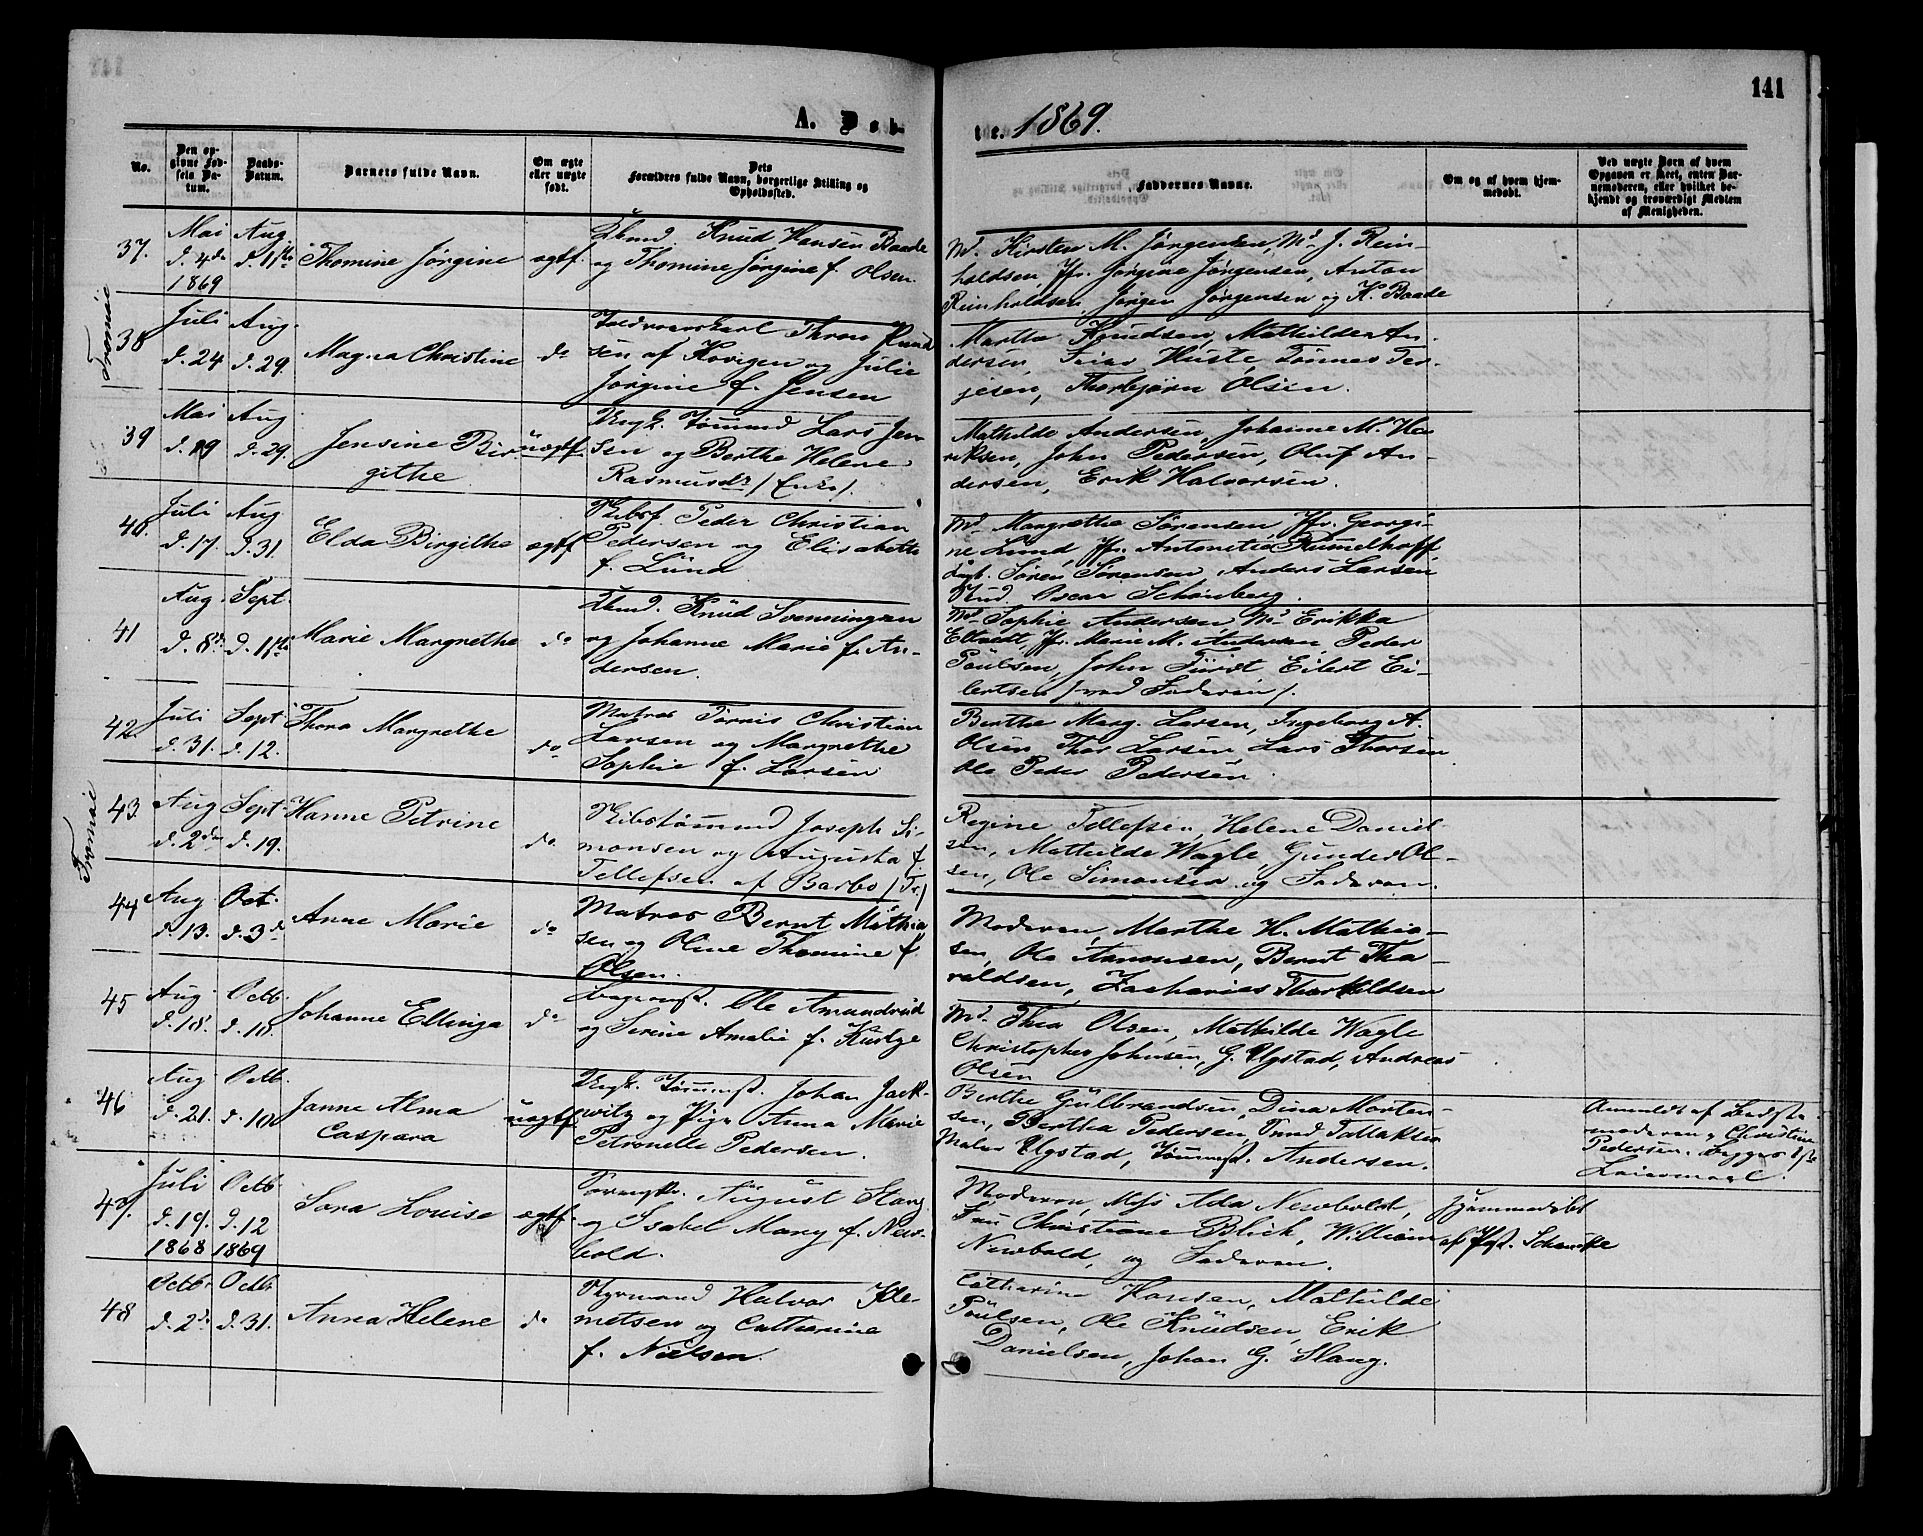 141
A. Døb-
te. 1869.
No.
Den op-
givne Fød-
sels Da-
tum.
Daabs-
Datum.
Barnets fulde Navn.
Om ægte
eller uægte
født.
Dets
Forældres fulde Navn, borgerlige Stilling og
Opholdssted.
Faddernes Navne.
Om og af hvem hjem-
medøbt.
Ved uægte Børn af hvem
Opgaven er skeet, enten Bar-
nemoderen, eller hvilket be-
kjendt og troværdigt Medlem
af Menigheden.
37.
Mai
d. 4de
1869
Aug
d. 11te
Thomine Jørgine
egtf.
Knud Hansen Baade
og Thomine Jørgine f. Olsen.
Md. Kirsten M. Jørgensen, Md. J. Rein-
holdsen, Jfr. Jørgine Jørgensen, Anton
Reinholdsen, Jørgen Jørgensen og K. Baade
Tromøie
38
Juli
d. 24
Aug.
d. 29.
Magna Christine
do
Thron Knud
sen af Kovigen og Julie
Jørgine f. Jensen
Martha Knudsen, Mathilde An-
dersen, Huste, Tønnes Ter-
jesen, Thorbjørn Olsen.
39
Mai
d. 19
Aug
d. 29.
Jensine Bir-
githe
uegtf.
Ungk. Tømmmd Lars Jen-
sen og Berthe Helene
Rasmusdr / Enke /.
Mathilde Andersen, Johanne M. Hen
riksen, John Pedersen, Oluf An-
dersen, Erik Halvorsen.
40.
Juli
d. 17.
Aug
d. 31.
Elda Birgithe
egtf
Skibsf. Peder Christian
Pedersen og Elisabette
f. Lund
Md. Margrethe Sørensen, Jfr. Georgi-
ne Lund, Jfr. Antonette Rummelhoff
Søren Sørensen, Anders Larsen
Stud. Oscar Schønberg.
41
Aug
d. 8de
Sept.
d. 11te
Marie Margrethe
do
Knud Svenningsen
og Johanne Marie f. An-
dersen.
Md. Sophie Andersen Md. Erikka
Jfr. Marie M. Andersen, Peder
Poulsen, John Fürst, Eilert Ei-
lertsen / ved Faderen /.
42.
Juli
d. 31.
Sept
d. 12.
Thora Margrethe
do
Matros Tørris Christian
Larsen og Margrethe
Sophie f. Larsen
Berthe Marg. Larsen, Ingeborg A.
Olsen Thor Larsen, Lars Thorsen
Ole Peder Pedersen.
Tromøie
43.
Aug
d. 2den
Sept.
d. 19.
Hanne Petrine
do
Skibstømmmd Joseph Si-
monsen og Augusta f.
Tellefsen af Barbo / Tr. /
Regine Tellefsen, Helene Daniel-
sen, Mathilde Wagle, Gunder Ol-
sen, Ole Simonsen og Faderen.
44
Aug
d. 13.
Oct.
d. 3de
Anne Marie
do
Matros Bernt Mathia
sen og Oline Thomine f.
Olsen.
Moderen, Marthe H. Mathia-
sen, Ole Aanonsen, Bernt Tha-
raldsen, Zacharias Thorkildsen
45
Aug.
d. 18.
Octb.
d. 10.
Johanne Ellinga
do
Ole Amundrud
og Serine Amalie f. Kustge
Md. Thea Olsen, Mathilde Wagle
Christopher Johnsen, G. Ugstad, Andreas
Olsen
46
Aug
d. 21.
Octb.
d. 10
Janne Alma
Caspara
uegtf
Ungk. Tømmmst. Johan Jack-
witz og Pige Anna Marie
Petronelle Pedersen.
Berthe Gulbrandsen, Dina Morten-
sen, Berthe Pedersen, Tallaksen
Maler Ugstad, Tømmmst. Andersen.
Anmeldt af
moderen, Christine
Pedersen.
47.
Juli
d. 19.
1868
Octb.
d. 12
1869
Sara Louise
egtf
August Stang
og Isabel Mary f. New-
bold.
Moderen, Miss Ada Newbold,
Fru Christiane Blich, William
Newbold, og Faderen.
Hjemmedøbt
af Pst. Schancke
48
Octb.
d. 2de
Octb.
d. 31.
Anna Helene
do
Styrmand Halvor Kle-
metsen og Catharine
f. Nielsen.
Catharine Hansen, Mathilde
Poulsen, Ole Knudsen, Erik
Danielsen, Johan G. Slang.